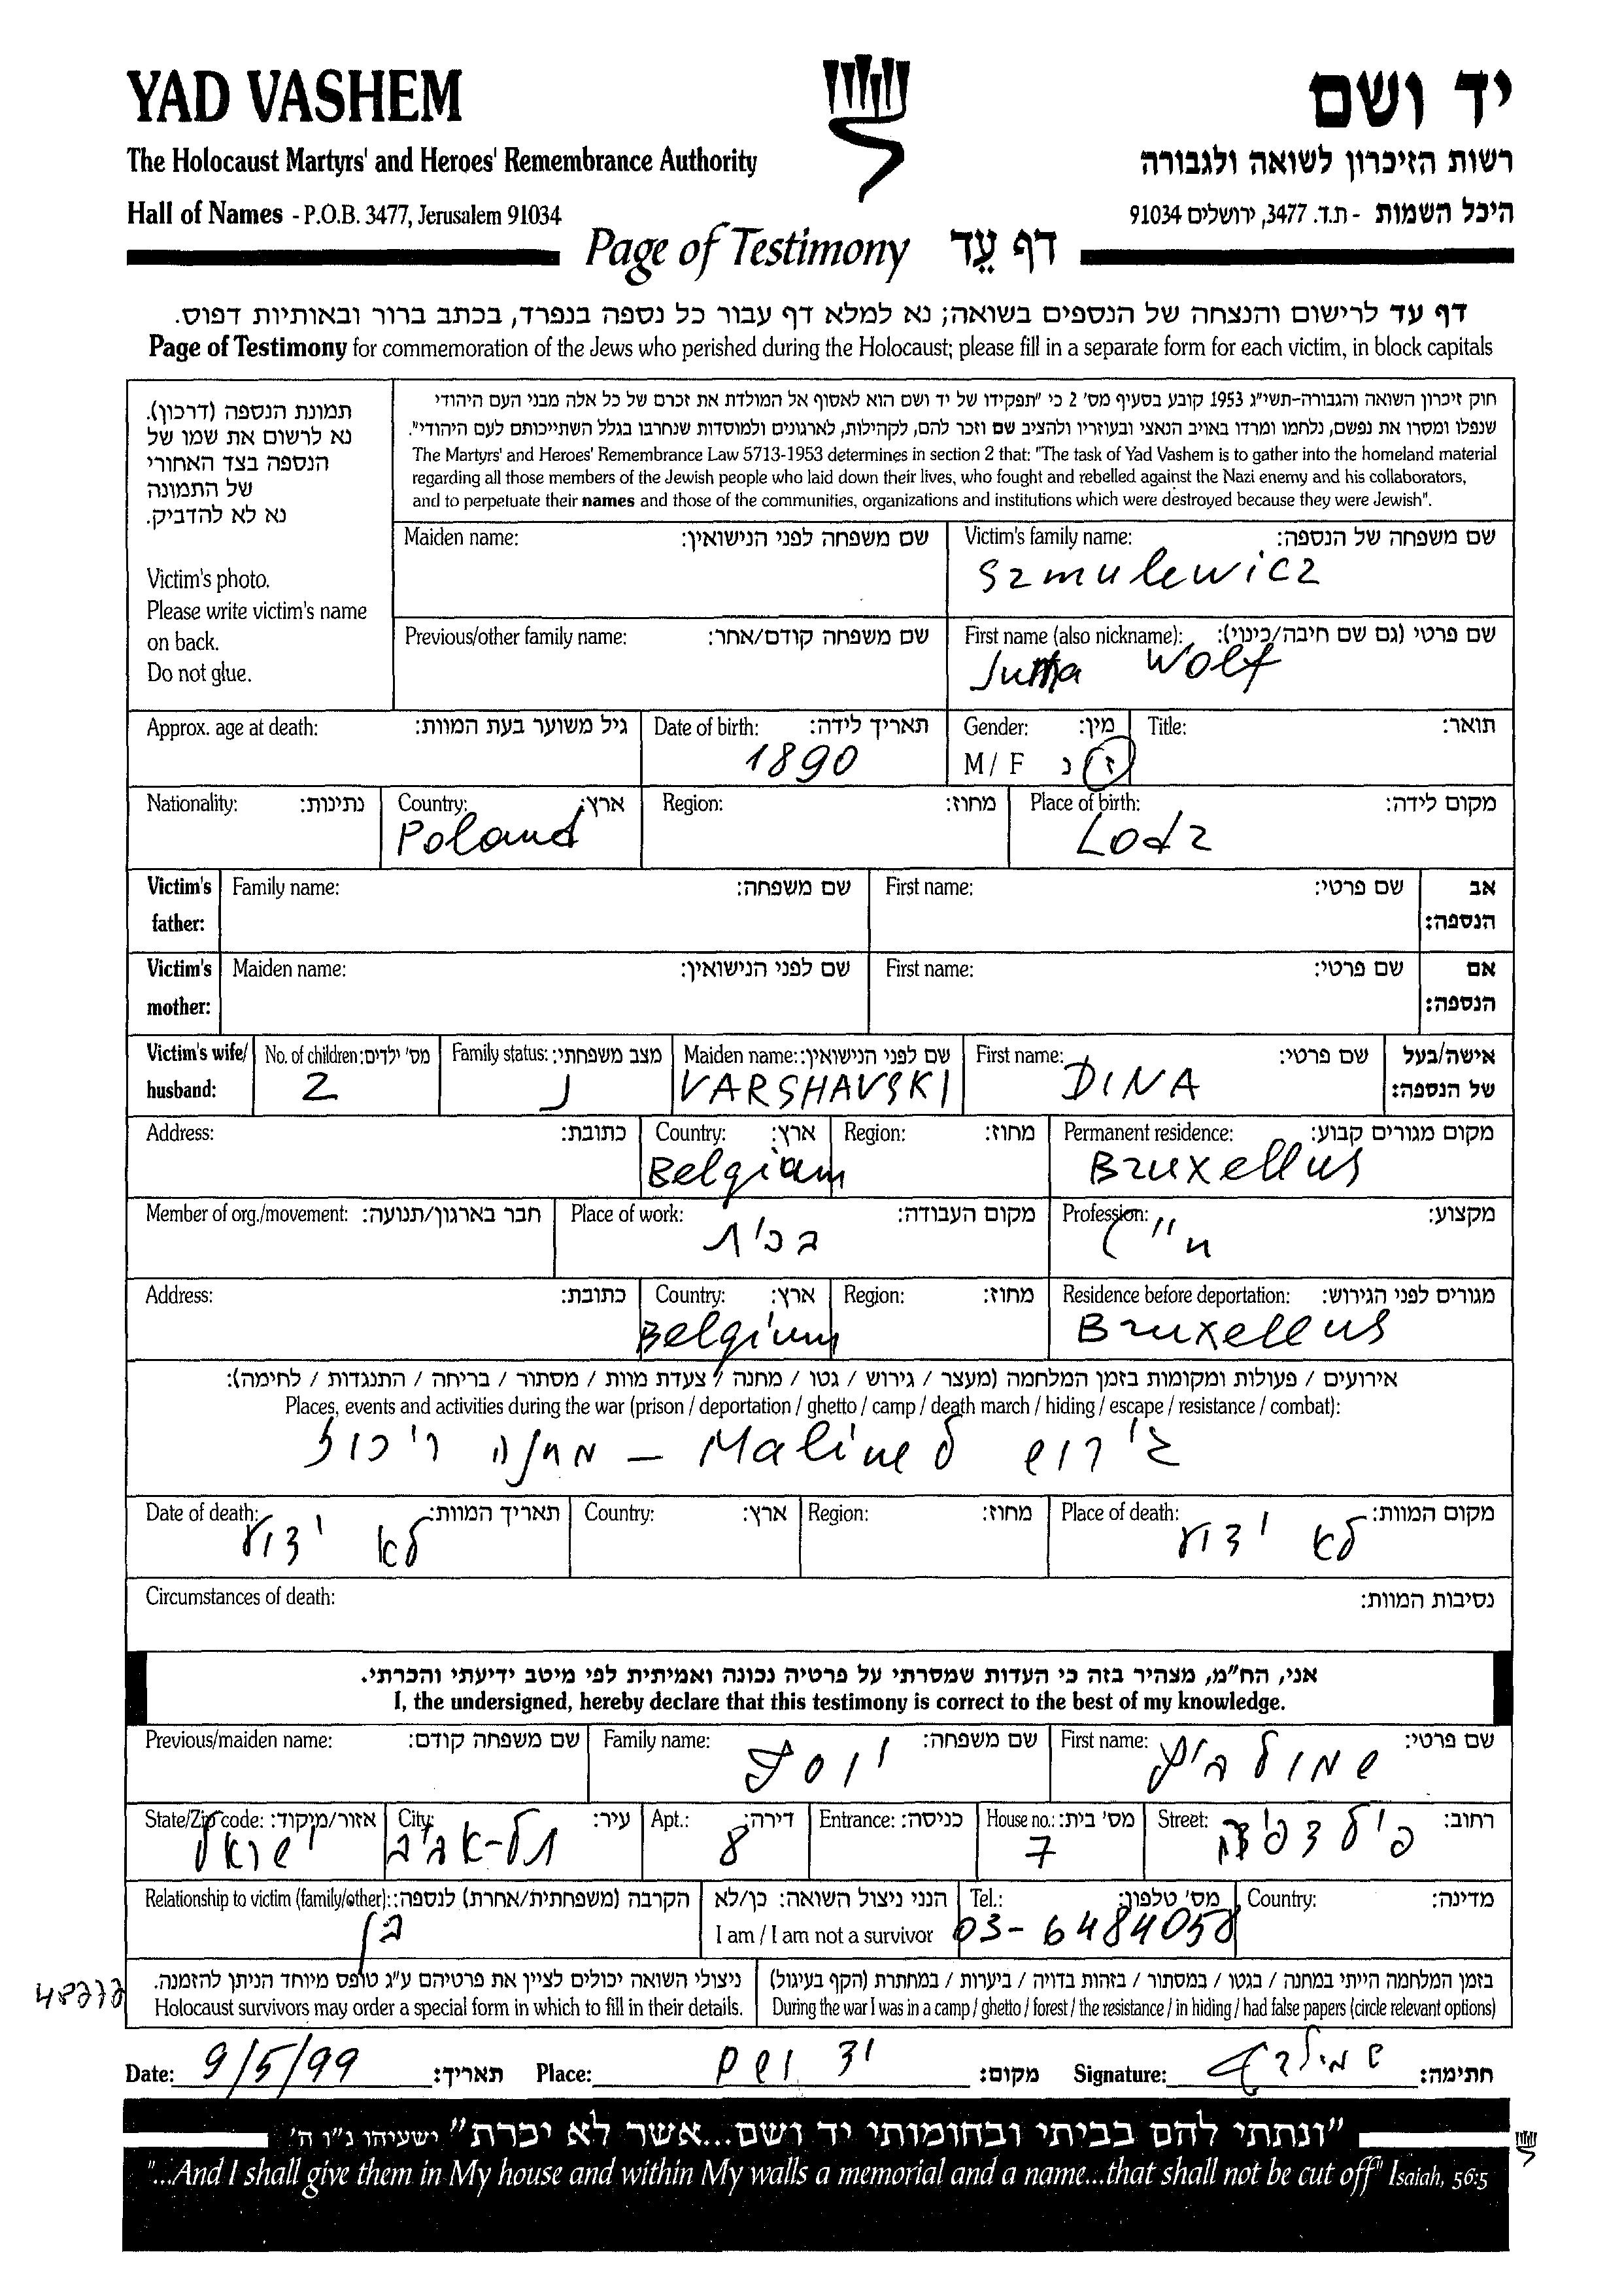 YAD VASHEM
יד ושם
The Holocaust Martyrs' and Heroes' Remembrance Authority
רשות הזיכרון לשואה ולגבורה
Hall of Names - P.O.B. 3477, Jerusalem 91034
היכל השמות - ת.ד. 3477, ירושלים 91034
Page of Testimony דף עֵד
דף עד לרישום והנצחה של הנספים בשואה; נא למלא דף עבור כל נספה בנפרד, בכתב ברור ובאותיות דפוס.
Page of Testimony for commemoration of the Jews who perished during the Holocaust; please fill in a separate form for each victim, in block capitals
תמונת הנספה (דרכון).
נא לרשום את שמו של
הנספה בצד האחורי
של התמונה
נא לא להדביק.
Victim's photo.
Please write victim's name
on back.
Do not glue.
חוק זיכרון השואה והגבורה-תשי"ג 1953 קובע בסעיף מס' 2 כי "תפקידו של יד ושם הוא לאסוף אל המולדת את זכרם של כל אלה מבני העם היהודי
שנפלו ומסרו את נפשם, נלחמו ומרדו באויב הנאצי ובעוזריו ולהציב שם וזכר להם, לקהילות, לארגונים ולמוסדות שנחרבו בגלל השתייכותם לעם היהודי".
The Martyrs' and Heroes' Remembrance Law 5713-1953 determines in section 2 that: "The task of Yad Vashem is to gather into the homeland material
regarding all those members of the Jewish people who laid down their lives, who fought and rebelled against the Nazi enemy and his collaborators,
and to perpetuate their names and those of the communities, organizations and institutions which were destroyed because they were Jewish".
Maiden name: שם משפחה לפני הנישואין:
Victim's family name: שם משפחה של הנספה:
Szmulewicz
Previous/other family name: שם משפחה קודם/אחר:
First name (also nickname): שם פרטי (גם שם חיבה/כינוי):
Wolf
Approx. age at death: גיל משוער בעת המוות:
Date of birth: תאריך לידה:
1890
Gender: מין:
M / F ז נ
Title: תואר:
Nationality: נתינות:
Country: ארץ:
Poland
Region: מחוז:
Place of birth: מקום לידה:
Lodz
Victim's father: Family name: שם משפחה: First name: שם פרטי: אב הנספה:
Victim's mother: Maiden name: שם לפני הנישואין: First name: שם פרטי: אם הנספה:
Victim's wife/ husband:
No. of children: מס' ילדים:
2
Family status: מצב משפחתי:
נ
Maiden name: שם לפני הנישואין:
VARSHAVSKI
First name: שם פרטי:
DINA
אישה/בעל של הנספה:
Address: כתובת:
Country: ארץ:
Belgium
Region: מחוז:
Permanent residence: מקום מגורים קבוע:
Bruxellus
Member of org./movement: חבר בארגון/תנועה:
Place of work: מקום העבודה:
בבית
Profession: מקצוע:
חייט
Address: כתובת:
Country: ארץ:
Belgium
Region: מחוז:
Residence before deportation: מגורים לפני הגירוש:
Bruxellus
אירועים / פעולות ומקומות בזמן המלחמה (מעצר / גירוש / גטו / מחנה / צעדת מוות / מסתור / בריחה / התנגדות / לחימה):
Places, events and activities during the war (prison / deportation / ghetto / camp / death march / hiding / escape / resistance / combat):
גירוש ל Maline – מחנה ריכוז
Date of death: תאריך המוות:
לא ידוע
Country: ארץ:
Region: מחוז:
Place of death: מקום המוות:
לא ידוע
Circumstances of death: נסיבות המוות:
אני, הח"מ, מצהיר בזה כי העדות שמסרתי על פרטיה נכונה ואמיתית לפי מיטב ידיעתי והכרתי.
I, the undersigned, hereby declare that this testimony is correct to the best of my knowledge.
Previous/maiden name: שם משפחה קודם:
Family name: שם משפחה:
יוסף
First name: שם פרטי:
שמולביץ
State/Zip code: אזור/מיקוד:
ישראל
City: עיר:
תל-אביב
Apt.: דירה:
8
Entrance: כניסה:
House no.: מס' בית:
7
Street: רחוב:
Relationship to victim (family/other): הקרבה (משפחתית/אחרת) לנספה:
בן
הנני ניצול השואה: כן/לא
I am / I am not a survivor
Tel.: מס' טלפון:
03-6484058
Country: מדינה:
ניצולי השואה יכולים לציין את פרטיהם ע"ג טופס מיוחד הניתן להזמנה.
Holocaust survivors may order a special form in which to fill in their details.
בזמן המלחמה הייתי במחנה / בגטו / במסתור / בזהות בדויה / ביערות / במחתרת (הקף בעיגול)
During the war I was in a camp / ghetto / forest / the resistance / in hiding / had false papers (circle relevant options)
Date: 9/5/99 תאריך:
Place: יד ושם מקום:
Signature: חתימה:
"ונתתי להם בביתי ובחומותי יד ושם...אשר לא יכרת" ישעיהו נ"ו ה'
"...And I shall give them in My house and within My walls a memorial and a name...that shall not be cut off" Isaiah, 56:5